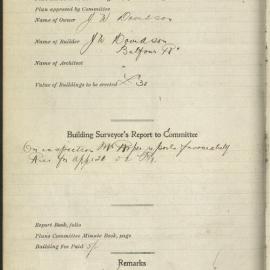 Plan approved by Committee
Name of Owner J W Davidson
Name of Builder J W Davidson
Balfour St
Name of Architect "
Value of Buildings to be erected £30
Building Surveyor's Report to Committee
On inspection Mr reports favourably
this for
Report Book, folio
Plans Committee Minute Book, page
Building Fee Paid 5/-
Remarks